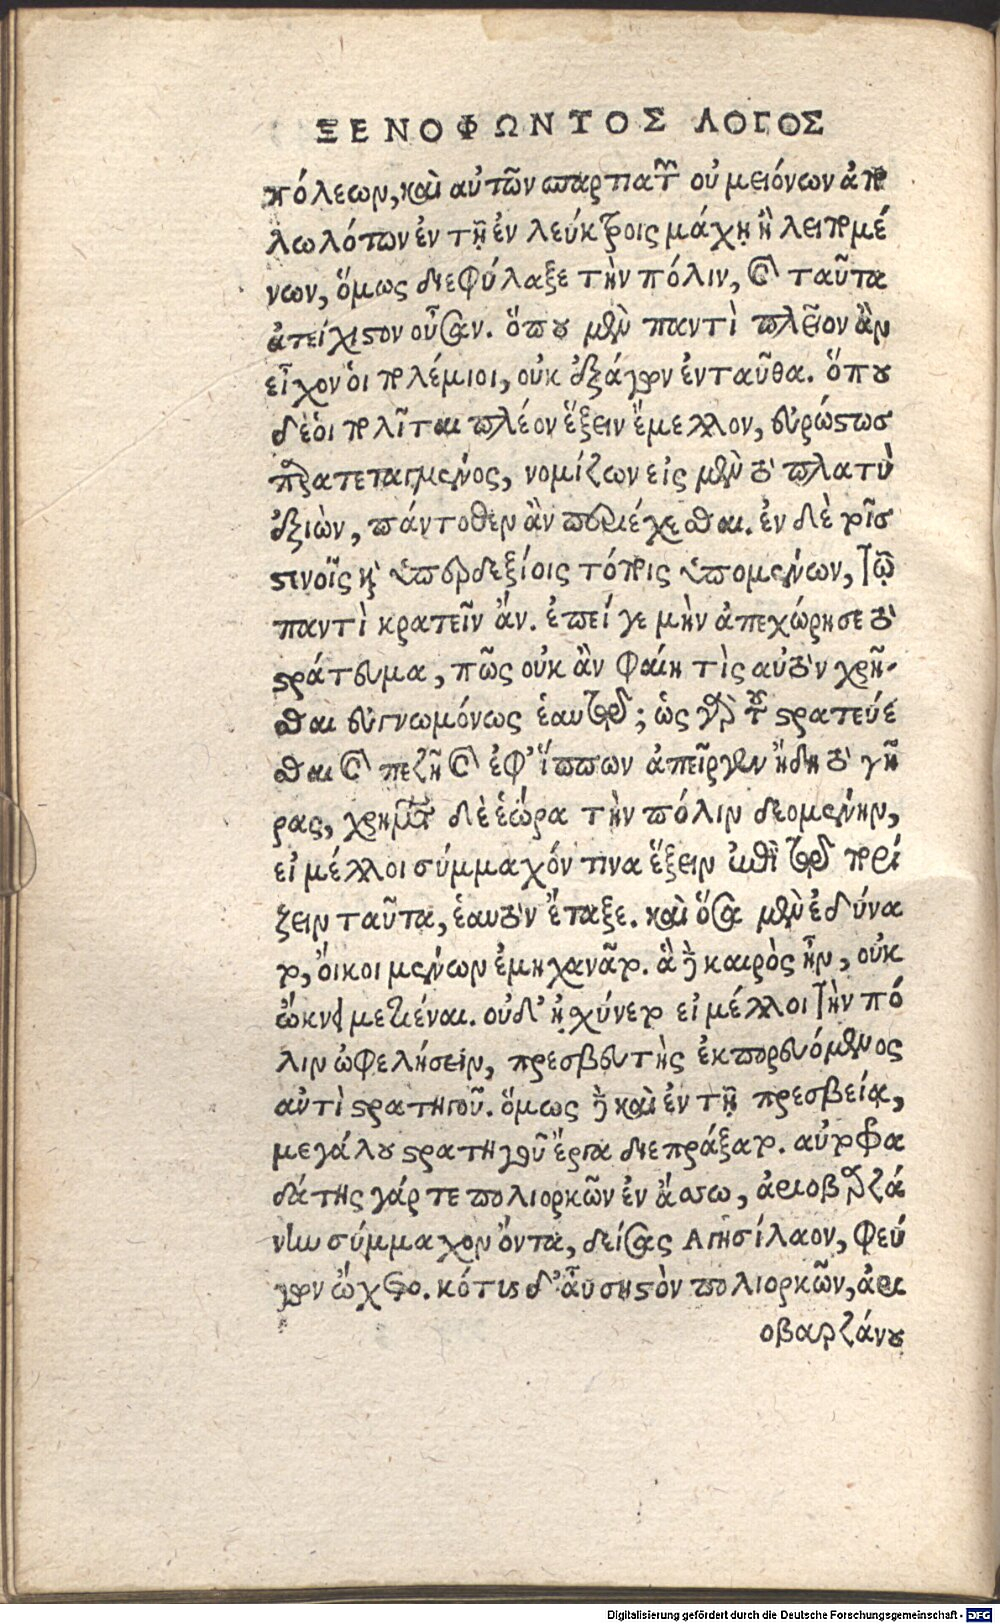 ΞΕΝΟΦΩΝΤΟΣ ΛΟΓΟΣ
πόλεων, καὶ αὐτῶν σπαρτιατῶν οὐ μειόνων ἀπο
λωλότων ἐν τῇ ἐν λεύκτροις μάχῃ ἢ λειπομέ
νων, ὅμως διεφύλαξε τὴν πόλιν, καὶ ταῦτα
ἀτείχιστον οὖσαν. ὅπου μὲν παντὶ πλεῖον ἂν
εἶχον οἱ πολέμιοι, οὐκ ἐξάγων ἐνταῦθα. ὅπου
δὲ οἱ πολῖται πλέον ἕξειν ἔμελλον, εὐρώστως
παρατεταγμένος, νομίζων εἰς μὲν τὸ πλατὺ
ἐξιὼν, πάντοθεν ἂν περιέχεσθαι. ἐν δὲ τοῖσ
στενοῖς καὶ ὑπερδεξίοις τόποις ὑπομένων, τῷ
παντὶ κρατεῖν ἄν. ἐπεί γε μὴν ἀπεχώρησε τὸ
στράτευμα, πῶς οὐκ ἂν φαίη τὶς αὐτὸν χρῆ-
σθαι εὐγνωμόνως ἑαυτῷ; ὡς γὰρ τοῦ στρατεύε
σθαι καὶ πεζῇ καὶ ἐφ' ἵππων ἀπεῖργεν ἤδη τὸ γῆ
ρας, χρημάτων δὲ ἑώρα τὴν πόλιν δεομένην,
εἰ μέλλοι σύμμαχόν τινα ἕξειν ἐπὶ τῷ πορί
ζειν ταῦτα, ἑαυτὸν ἔταξε. καὶ ὅσα μὲν ἐδύνα
το, οἴκοι μένων ἐμηχανᾶτο. ἃ δὲ καιρὸς ἦν, οὐκ
ὤκνει μετιέναι. οὐδ' ᾐσχύνετο εἰ μέλλοι τὴν πό
λιν ὠφελήσειν, πρεσβευτὴς ἐκπορευόμενος
αὐτὶ στρατηγοῦ. ὅμως δὲ καὶ ἐν τῇ πρεσβείᾳ,
μεγάλου στρατηγοῦ ἔργα διεπράξατο. αὐτοφρα
δάτης γάρ τε πολιορκῶν ἐν ἄσσω, ἀριοβαρζά
νην σύμμαχον ὄντα, δείσας Αγησίλαον, φεύ
γων ᾤχετο. κότυς δ' αὖ σηστὸν πολιορκῶν, ἀρι
οβαρζάνου